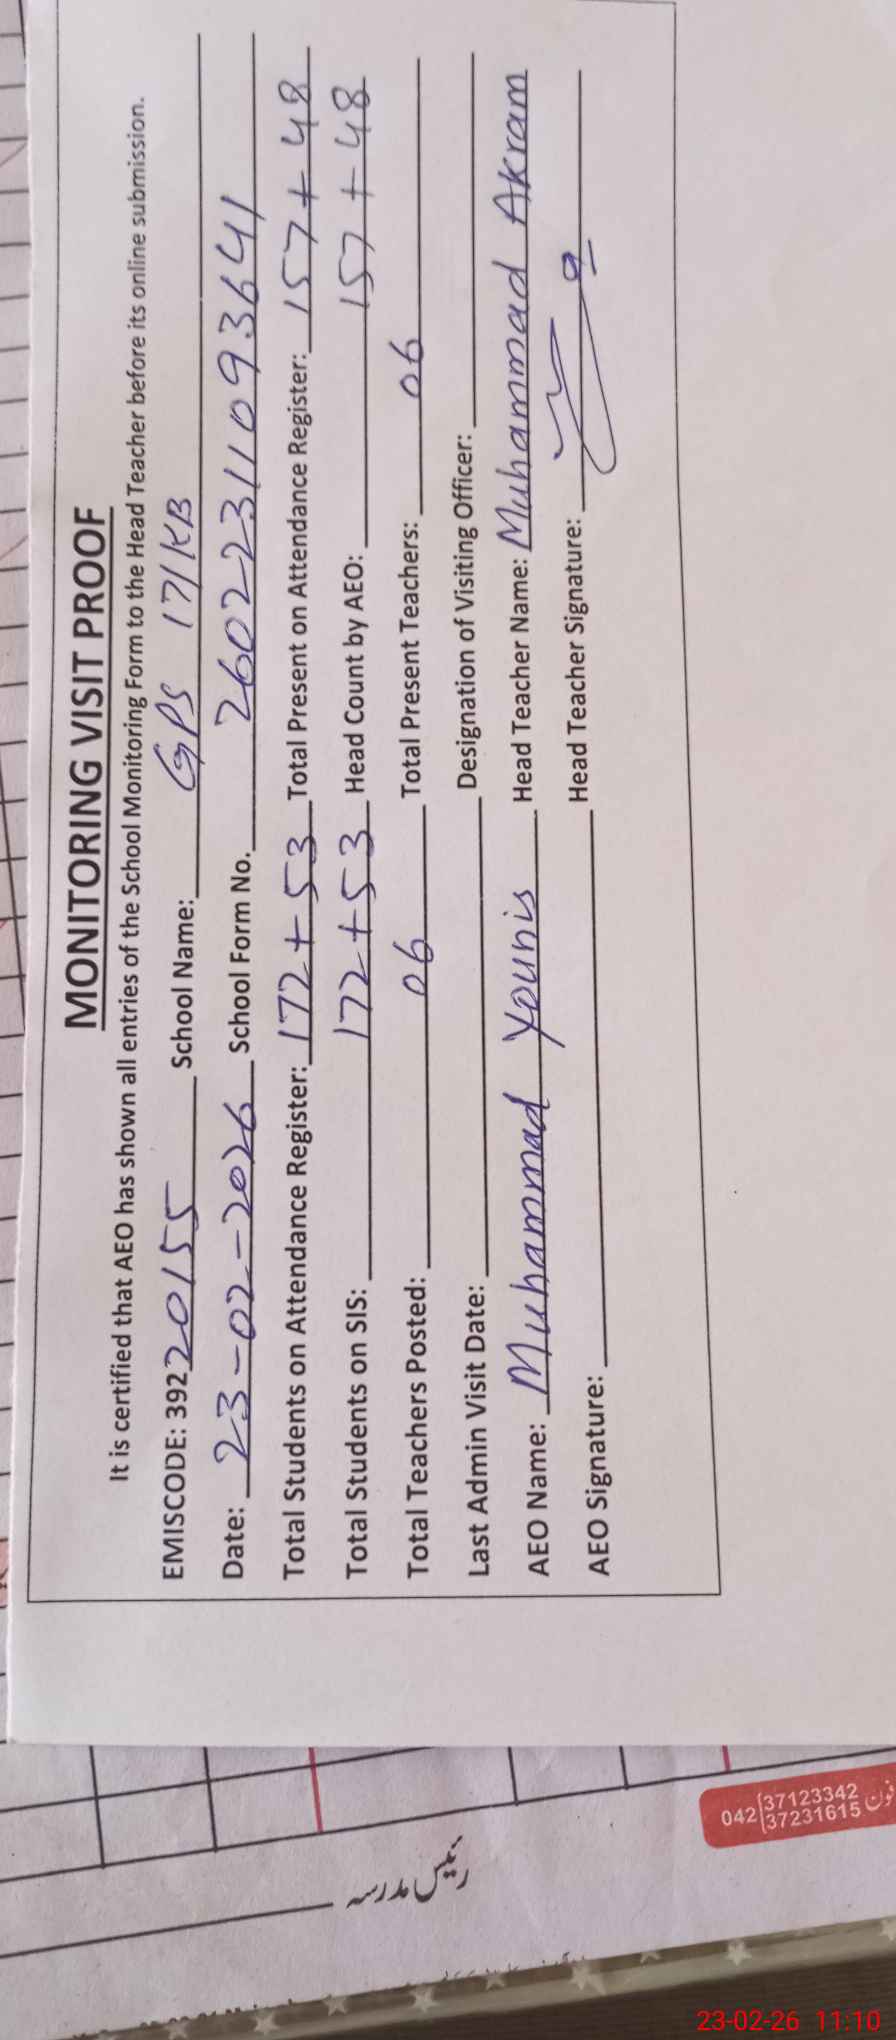 MONITORING VISIT PROOF
It is certified that AEO has shown all entries of the School Monitoring Form to the Head Teacher before its online submission.
EMISCODE: 39220155 School Name: GPS 171KB
Date: 23-02-2026 School Form No. 26022311093641
Total Students on Attendance Register: 172+53 Total Present on Attendance Register: 157+48
Total Students on SIS: 172+53 Head Count by AEO: 157+48
Total Teachers Posted: 06 Total Present Teachers: 06
Last Admin Visit Date: Designation of Visiting Officer:
AEO Name: Muhammad Younis Head Teacher Name: Muhammad Akram
AEO Signature: Head Teacher Signature:
رئیس مدرسہ
042 37123342
37231615 فون
23-02-26 11:10